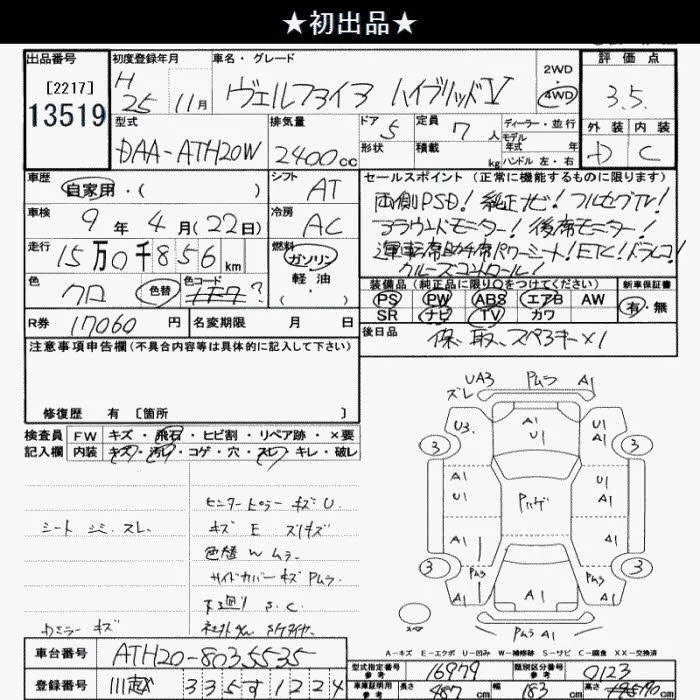 ★初出品★
出品番号
[2217]
13519
初度登録年月
H
25年 11月
車名・グレード
ヴェルファイア ハイブリッドV
2WD
・
4WD
評価点
3.5.
外装 内装
D C
型式
DAA-ATH20W
排気量
2400cc
ドア 5
形状
定員 7人
積載 kg
ディーラー・並行
モデル
年式 年
ハンドル 左・右
車歴
自家用・( )
シフト
AT
車検
9年 4月(22日)
冷房
AC
走行
15万0千856km
燃料
ガソリン
・
軽油
( )
色
クロ
色替
色コード
?
R券
17060円
名変期限 月 日
セールスポイント(正常に機能するものに限ります)
両側PSD! 純正ナビ! フルセグTV!
アラウンドモニター! 後席モニター!
運転席助手席パワーシート! ETC! ドラレコ!
クルーズコントロール!
装備品(純正品に限り○をつけてください)
PS PW ABS エアB AW
SR ナビ TV カワ
新車保証書
有・無
後日品
保、取、スペアキー×1
注意事項申告欄(不具合内容等は具体的に記入して下さい)
修復歴 有 [箇所 ]
検査員
記入欄
FW キズ・飛石・ヒビ割・リペア跡・×要
内装 キズ・汚レ・コゲ・穴・スレ・キレ・破レ
シート シミ、スレ、
センターピラー キズ U.
キズ E スリキズ
色替 W ムラ.
サイドカバー キズ Pムラ.
下廻り S.C.
Rミラー キズ
UA3
スレ
Pムラ A1
U3.
A1
U1
A1
U1
3
3
A1
U1
A1
U1
Pハゲ
A1
A1
3
3
Pムラ
A1
A1
Pムラ
A1
Pムラ A1
A-キズ E-エクボ U-凹み W-補修跡 S-サビ C-腐食 XX-交換済
車台番号
ATH20-8035535
登録番号
川越 335す1224
型式指定番号
参考
16979
類別区分番号
参考
0123
車庫証明用
参考
長さ 487cm
幅 183cm
高さ cm